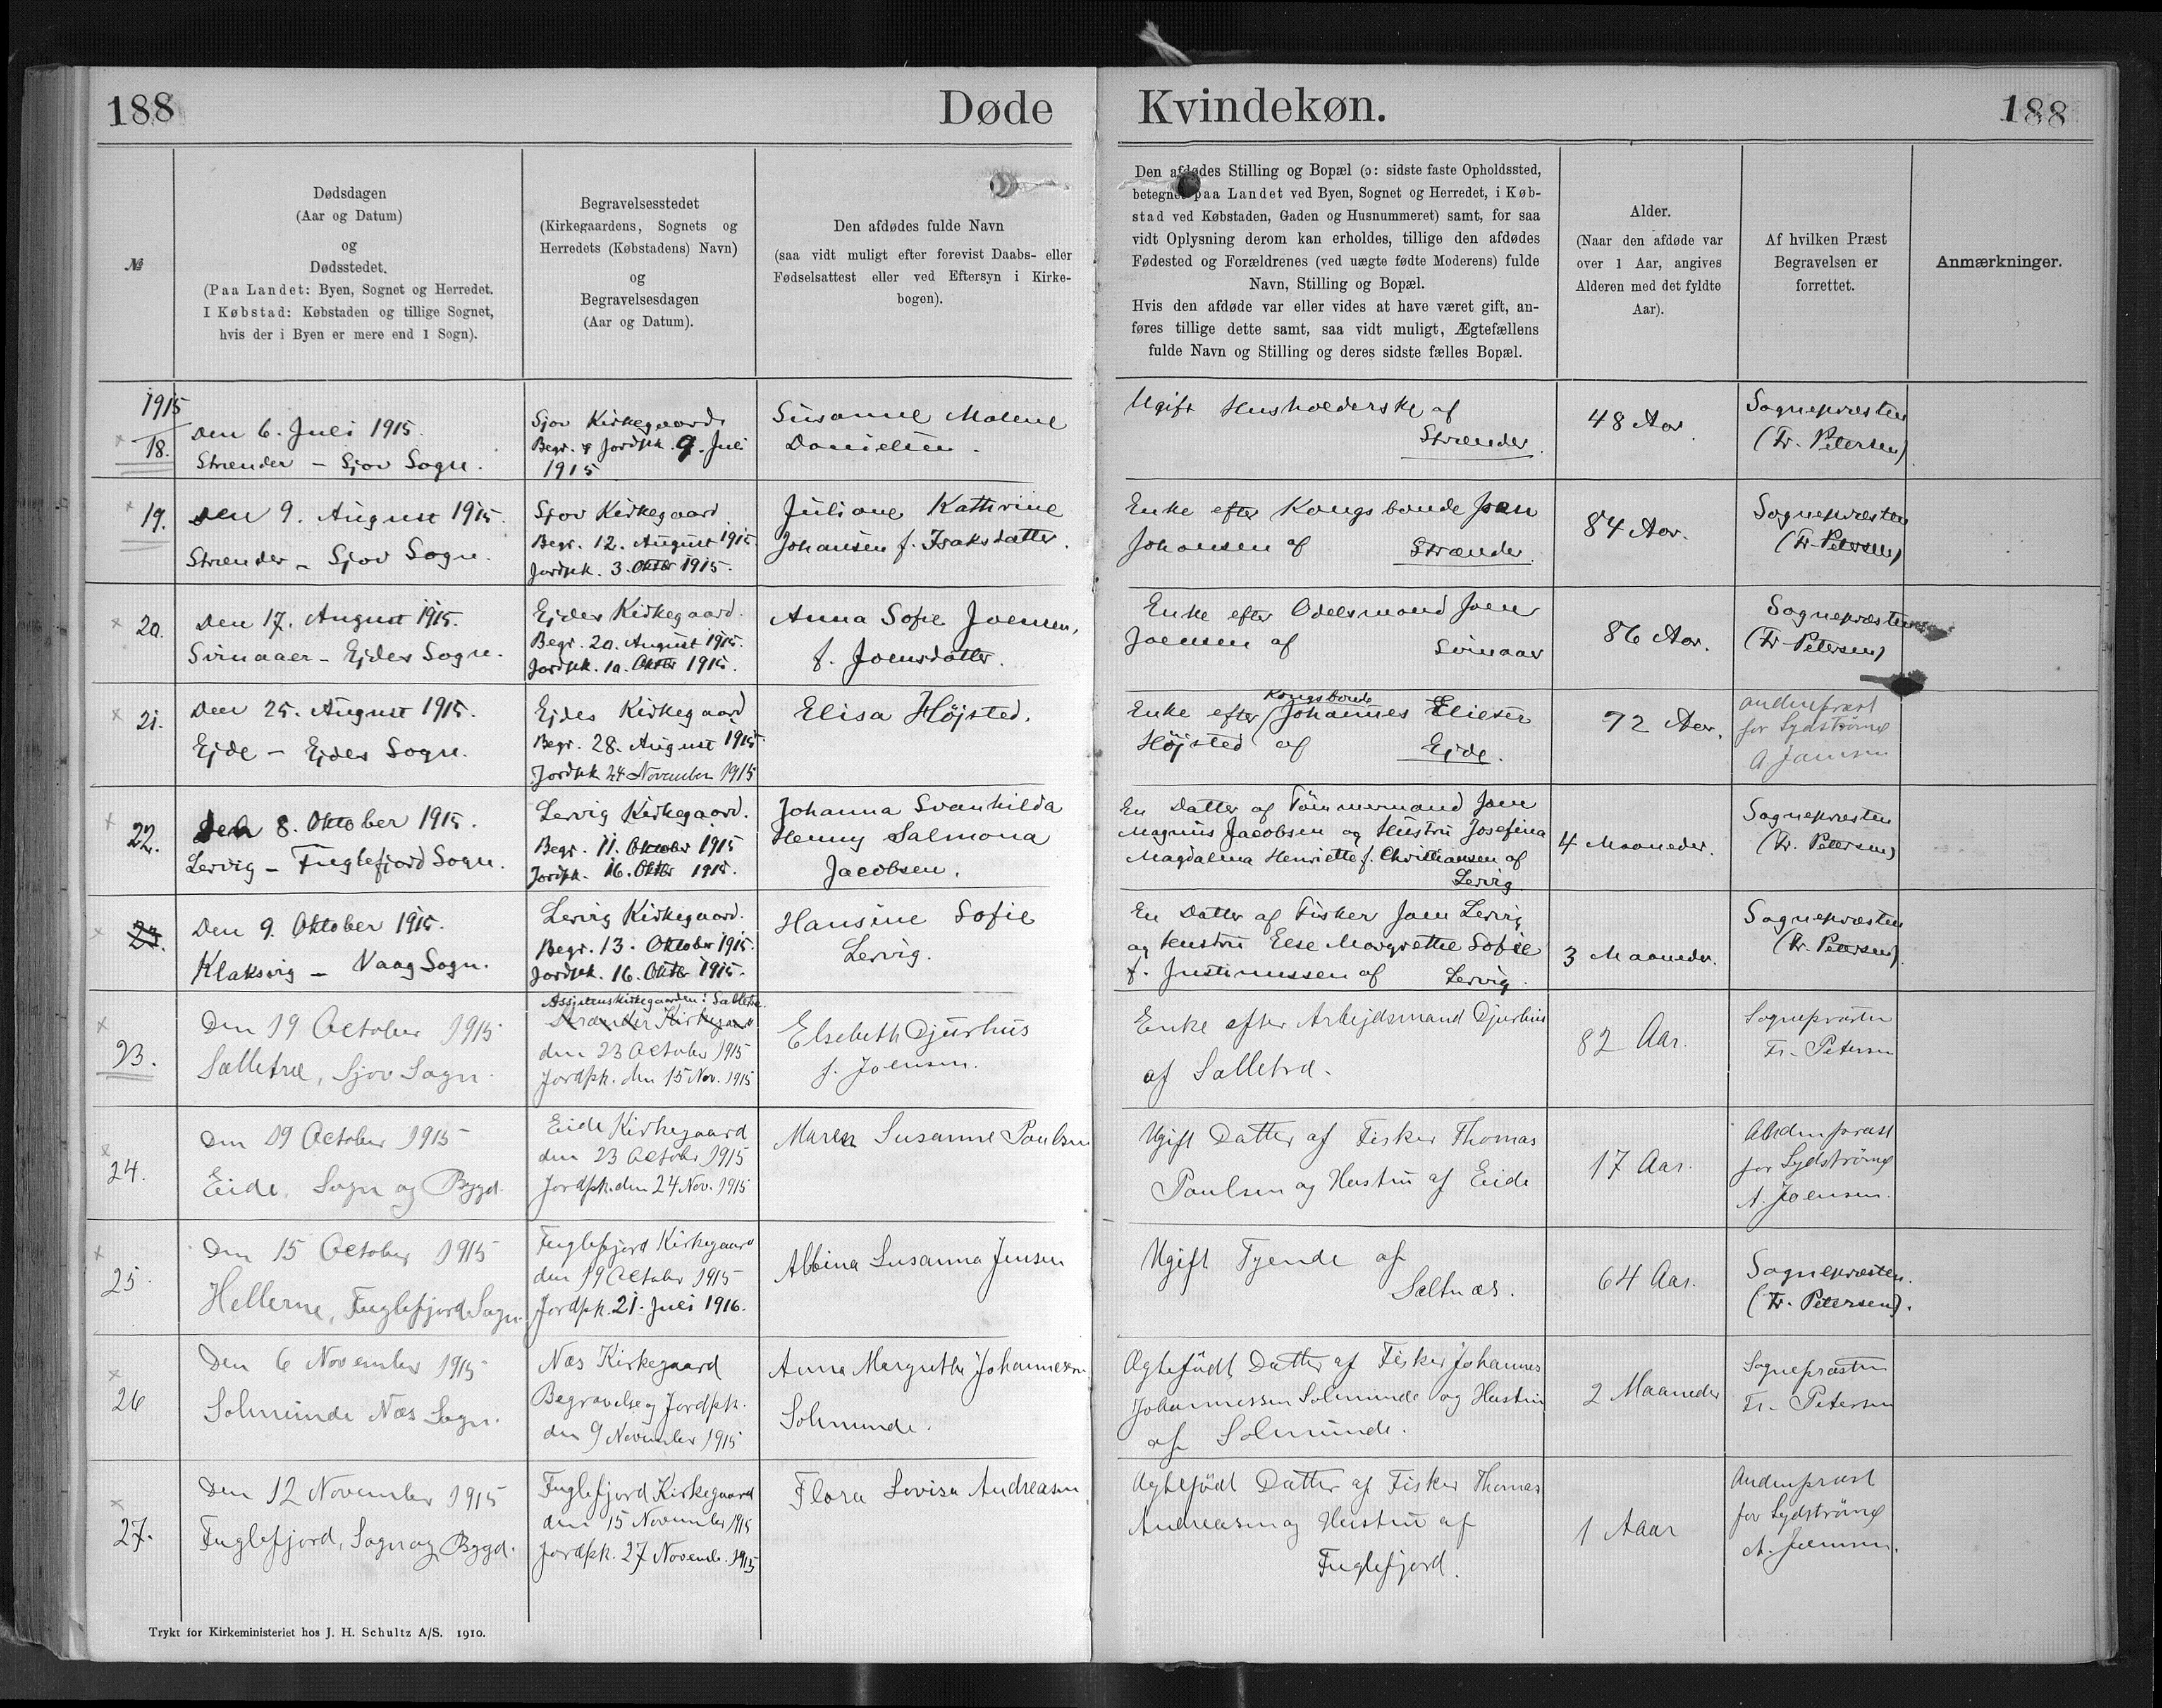 188
Døde
Kvindekøn.
188
№
Dødsdagen
(Aar og Datum)
og
Dødsstedet.
(Paa Landet: Byen, Sognet og Herredet.
I Købstad: Købstaden og tillige Sognet,
hvis der i Byen er mere end 1 Sogn).
Begravelsesstedet
(Kirkegaardens, Sognets og
Herredets (Købstadens) Navn)
og
Begravelsesdagen
(Aar og Datum).
Den afdødes fulde Navn
(saa vidt muligt efter forevist Daabs- eller
Fødselsattest eller ved Eftersyn i Kirke-
bogen).
Den afdødes Stilling og Bopæl (ɔ: sidste faste Opholdssted,
betegnet paa Landet ved Byen, Sognet og Herredet, i Køb-
stad ved Købstaden, Gaden og Husnummeret) samt, for saa
vidt Oplysning derom kan erholdes, tillige den afdødes
Fødested og Forældrenes (ved uægte fødte Moderens) fulde
Navn, Stilling og Bopæl.
Hvis den afdøde var eller vides at have været gift, an-
føres tillige dette samt, saa vidt muligt, Ægtefællens
fulde Navn og Stilling og deres sidste fælles Bopæl.
Alder.
(Naar den afdøde var
over 1 Aar, angives
Alderen med det fyldte
Aar).
Af hvilken Præst
Begravelsen er
forrettet.
Anmærkninger.
1915
18.
Den 6. Juli 1915.
Strænder – Sjov Sogn.
Sjov Kirkegaard
Begr. & Jordpk. 9. Juli
1915
Susanne Malene
Danielsen.
Ugift Husholderske af
Strænder.
48 Aar.
Sognepræsten
(Fr. Petersen)
19.
Den 9. August 1915.
Strænder – Sjov Sogn.
Sjov Kirkegaard
Begr. 12. August 1915.
Jordpk. 3. Oktbr 1915.
Juliane Kathrine
Johansen f. Isaksdatter.
Enke efter Kongsbonde Joen
Johansen af Strænder.
84 Aar.
Sognepræsten
(Fr. Petersen)
20.
Den 17. August 1915.
Svinaaer – Ejdes Sogn.
Ejdes Kirkegaard.
Begr. 20. August 1915.
Jordpk. 10. Oktbr 1915.
Anna Sofie Joensen,
f. Joensdatter.
Enke efter Odelsmand Joen
Joensen af Svinaar
86 Aar.
Sognepræsten
(Fr. Petersen)
21.
Den 25. August 1915.
Ejde – Ejdes Sogn.
Ejdes Kirkegaard
Begr. 28. August 1915.
Jordpk 24 November 1915
Elisa Højsted.
Kongsbonde
Enke efter Johannes Elieser
Højsted af Ejde.
72 Aar.
Andenpræst
for Sydstrømø
A Joensen
22.
Den 8. Oktober 1915.
Lervig – Fuglefjord Sogn.
Lervig Kirkegaard.
Begr. 11. Oktober 1915
Jordpk. 16. Oktbr 1915.
Johanna Svanhilda
Henny Salmona
Jacobsen.
En Datter af Tømmermand Joen
Magnus Jacobsen og Hustru Josefina
Magdalena Henriette f. Christiansen af
Lervig
4 Maaneder.
Sognepræsten
(Fr. Petersen)
23.
Den 9. Oktober 1915.
Klaksvig – Vaag Sogn.
Lervig Kirkegaard.
Begr. 13. Oktober 1915.
Jordpk. 16. Oktbr 1915.
Hansine Sofie
Lervig.
En Datter af Fisker Joen Lervig
og Hustru Else Margrethe Sofie
f. Justinussen af Lervig.
3 Maaneder.
Sognepræsten
(Fr. Petersen).
23.
Den 19 October 1915
Selletræ, Sjov Sogn.
Assistenskirkegaarden i Selletræ.
Strænder Kirkegaard
den 23 October 1915
Jordpk. den 15 Nov. 1915
Elsebeth Djurhus
f. Joensen.
Enke efter Arbejdsmand Djurhus
af Selletræ.
82 Aar.
Sognepræsten
Fr. Petersen
24.
Den 19 October 1915
Eide, Sogn og Bygd.
Eide Kirkegaard
den 23 October 1915
Jordpk. den 24 Nov. 1915
Maren Susanne Poulsen
Ugift Datter af Fisker Thomas
Poulsen og Hustru af Eide
17 Aar.
Andenpræst
for Sydstrømø
A. Joensen.
25
Den 15 October 1915
Hellerne, Fuglefjord Sogn.
Fuglefjord Kirkegaard
den 19 October 1915
Jordpk. 21. Juli 1916.
Albina Susanna Jensen
Ugift Tyende af
Saltnæs.
64 Aar.
Sognepræsten.
(Fr. Petersen).
26
Den 6 November 1915
Solmunde Næs Sogn.
Næs Kirkegaard
Begravelse og Jordpk.
den 9 November 1915
Anna Margretha Johannessen
Solmunde.
Ægtefödt Datter af Fisker Johannes
Johannessen Solmunde og Hustru
af Solmunde.
2 Maaneder
Sognepræsten
Fr. Petersen
27.
Den 12 November 1915
Fuglefjord, Sogn og Bygd.
Fuglefjord Kirkegaard
den 15 November 1915
Jordpk. 27 Novemb. 1915
Flora Lovisa Andreasen
Ægtefödt Datter af Fisker Thomas
Andreasen og Hustru af
Fuglefjord.
1 Aaar
Andenpræst
for Sydstrømø
A. Joensen.
Trykt for Kirkeministeriet hos J. H. Schultz A/S. 1910.